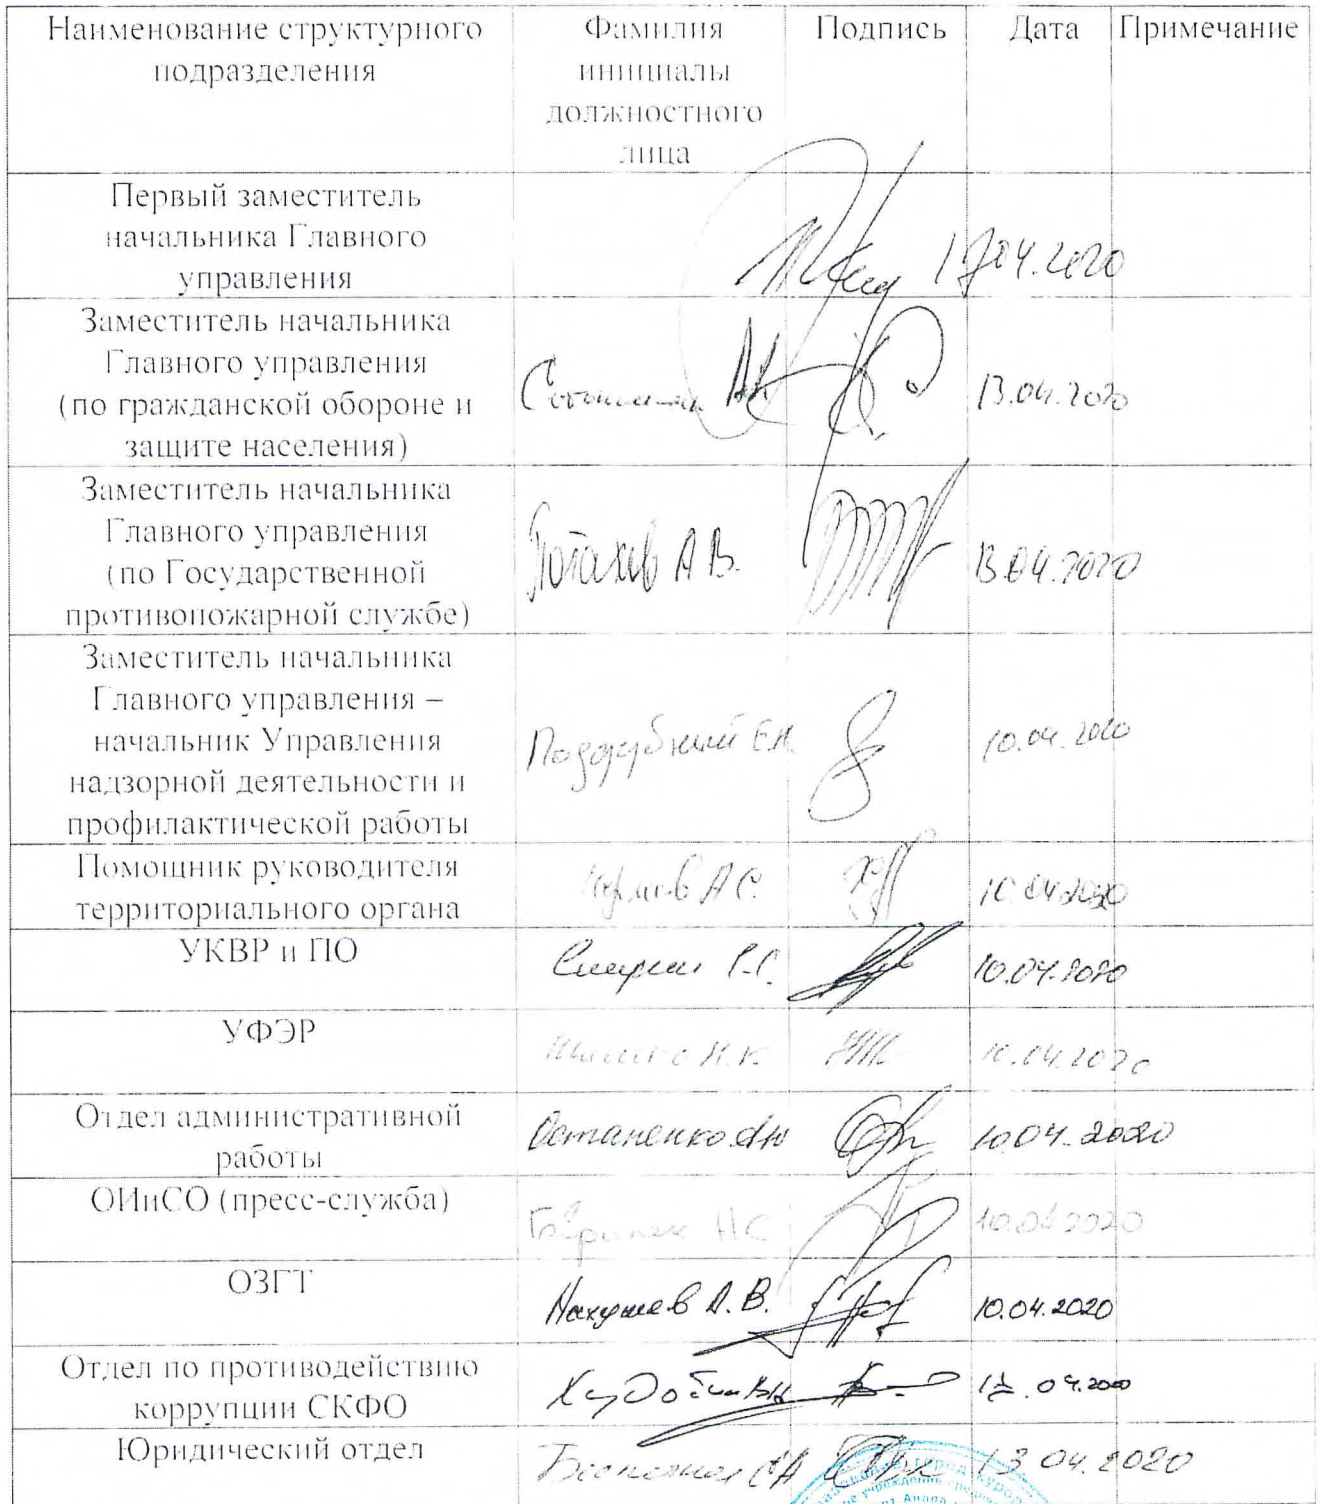 Наименование структурного подразделения
Фамилия инициалы должностного лица
Подпись
Дата
Примечание
Первый заместитель
начальника Главного
управления
04.2020
Заместитель начальника
Главного управления
(по гражданской обороне и
защите населения)
13.04.2020
Заместитель начальника
Главного управления
(по Государственной
противопожарной службе)
Потахов А В.
13.04.2020
Заместитель начальника
Главного управления –
начальник Управления
надзорной деятельности и
профилактической работы
Поддубный Е.Н.
10.04.2020
Помощник руководителя
территориального органа
А С.
10.04.2020
УКВР и ПО
10.04.2020
УФЭР
10.04.2020
Отдел административной
работы
Остапенко
10.04.2020
ОИиСО (пресс-служба)
10.04.2020
ОЗГТ
Нахушев А.В.
10.04.2020
Отдел по противодействию
коррупции СКФО
04.2020
Юридический отдел
13.04.2020